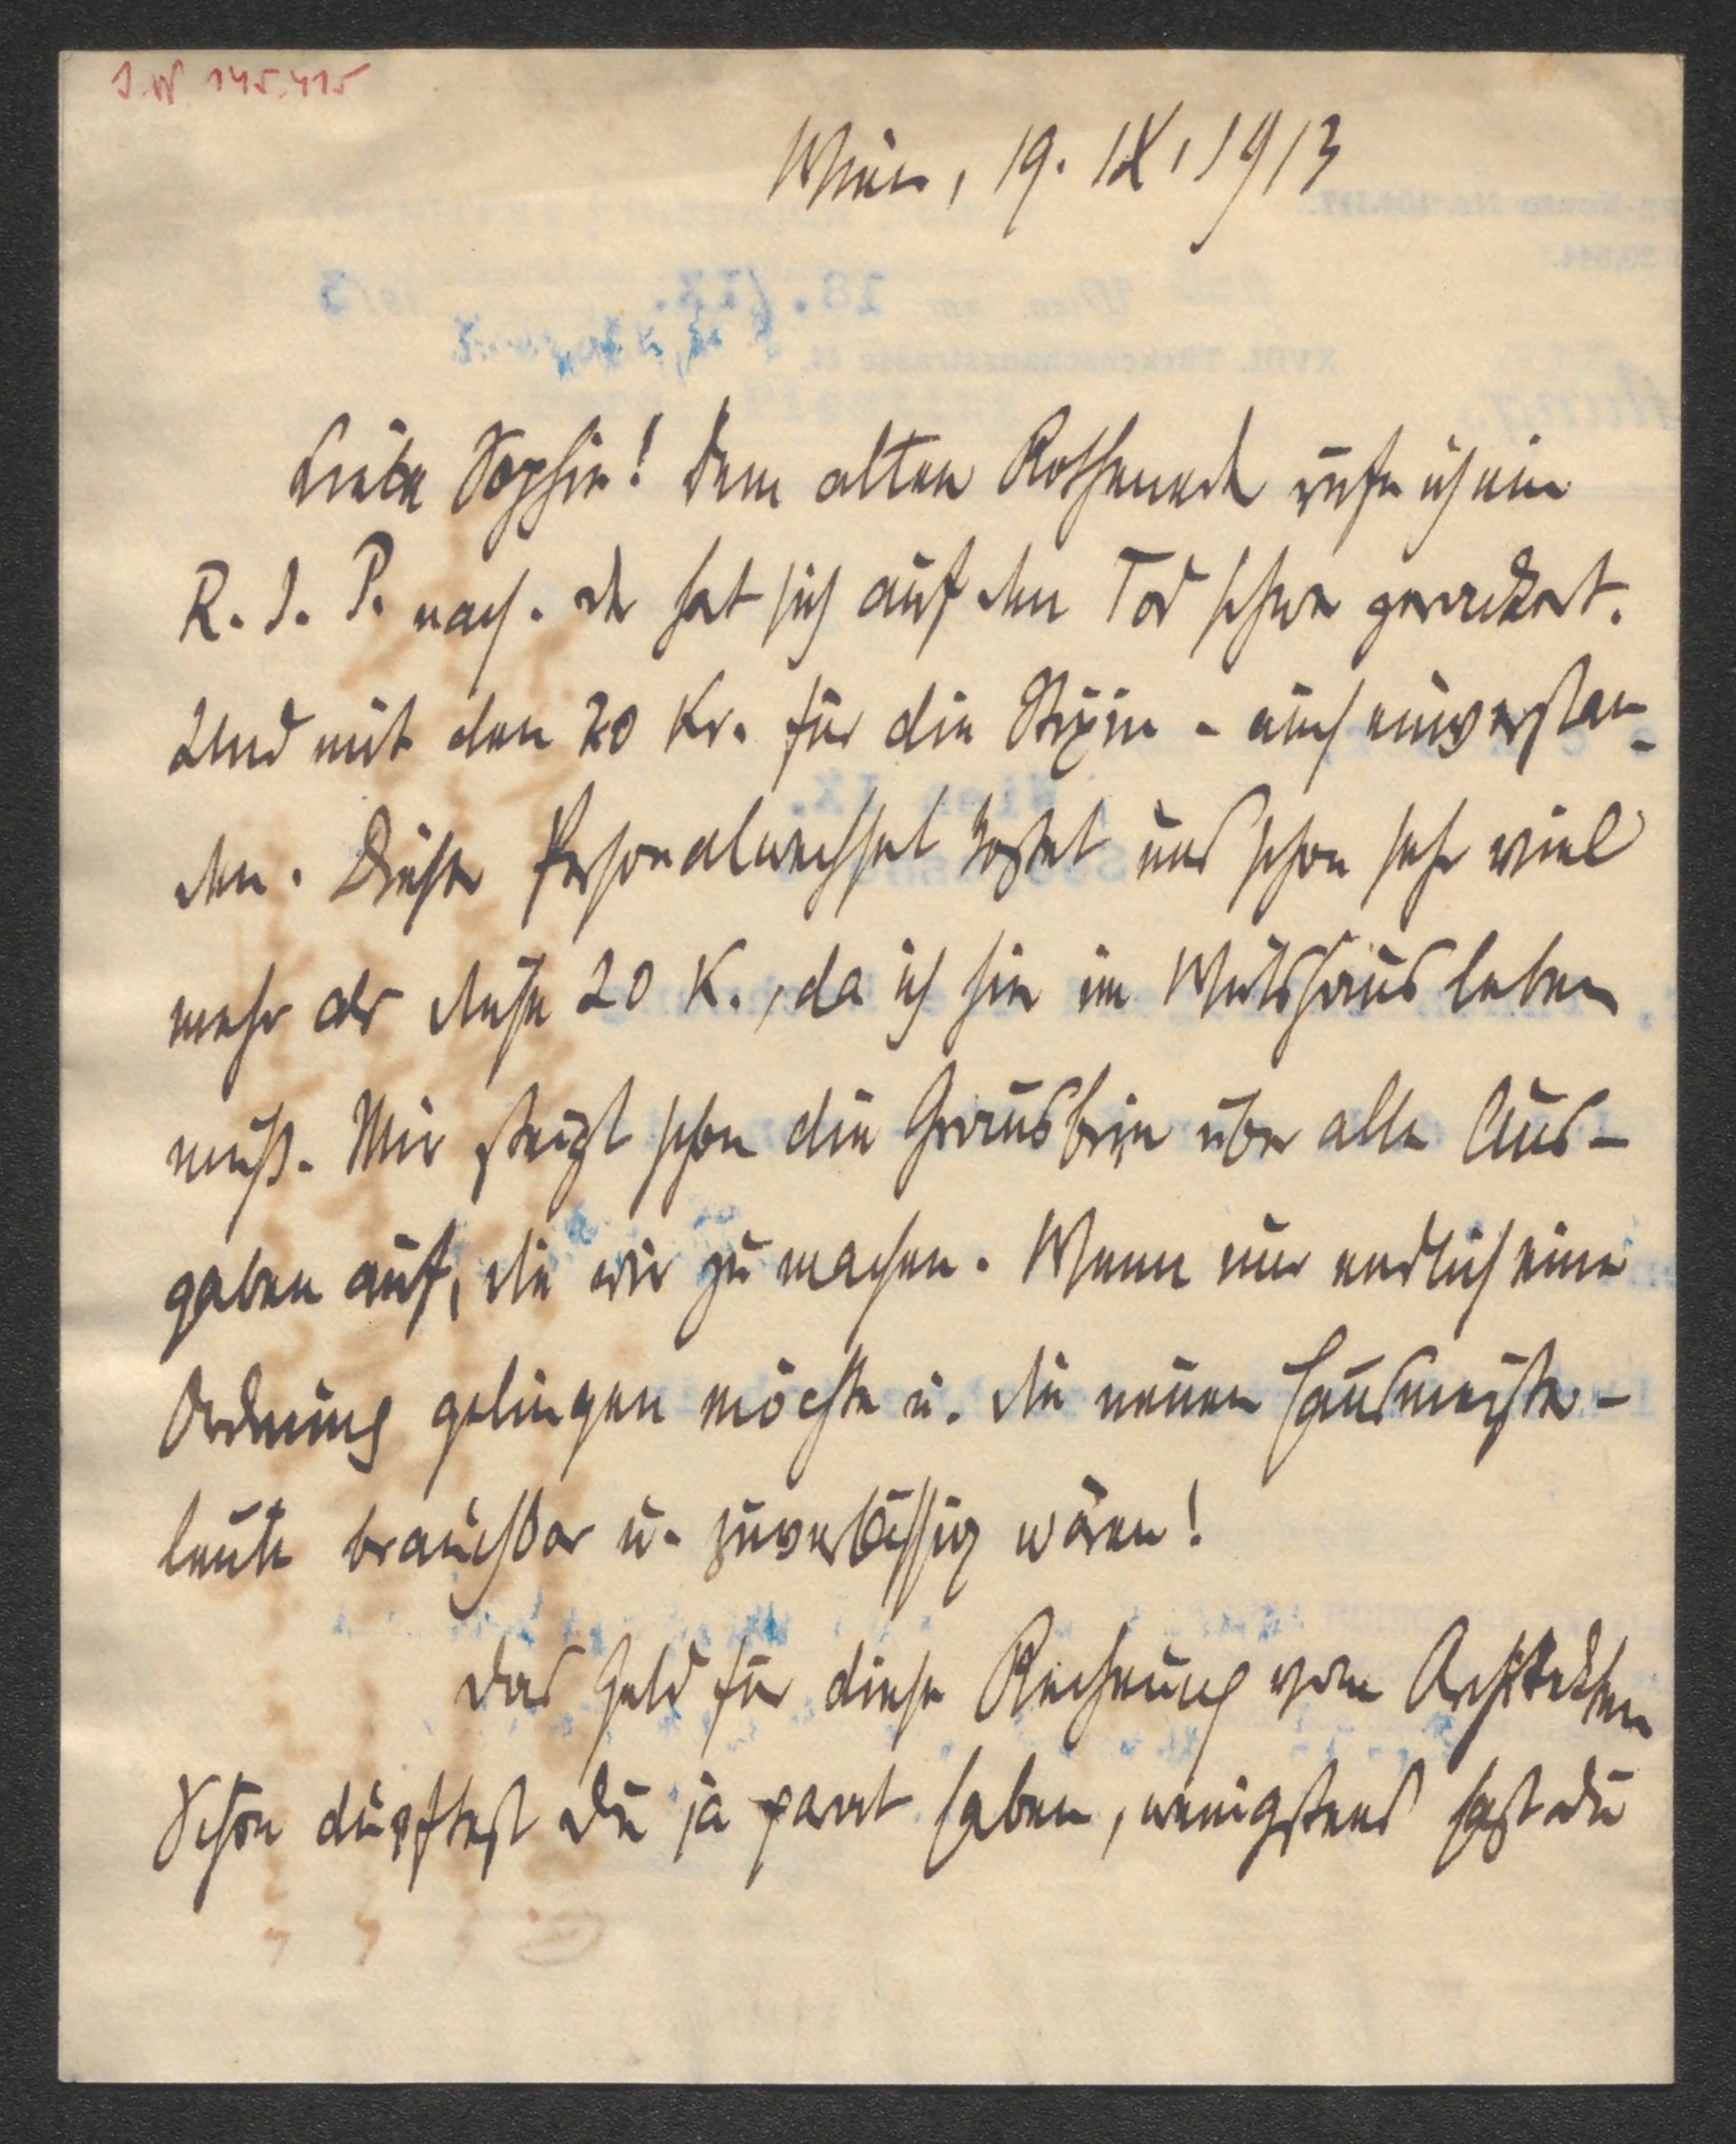 I.N 145.415
Wien, 19. IX. 1913
Liebe Sophie! Dem alten Rotheneck rufe ich ein
R. I. P. nach. Er hat sich auf den Tod schwer gerackert.
Und mit den 20 Kr. für die – auch einverstan-
den. Dieser Personalwechsel kostet uns schon sehr viel
mehr als diese 20 K., da ich hier im Wirtshaus leben
muß. Mir steigt schon die Grausbirn über alle Aus-
gaben auf, die wir zu machen. Wenn nur endlich eine
Ordnung gelingen möchte u. die neuen Hausmeister-
leute brauchbar u. zuverlässig wären!
Das Geld für diese Rechnung vom Architekten
Schön dürftest Du ja parat haben, wenigstens hast Du